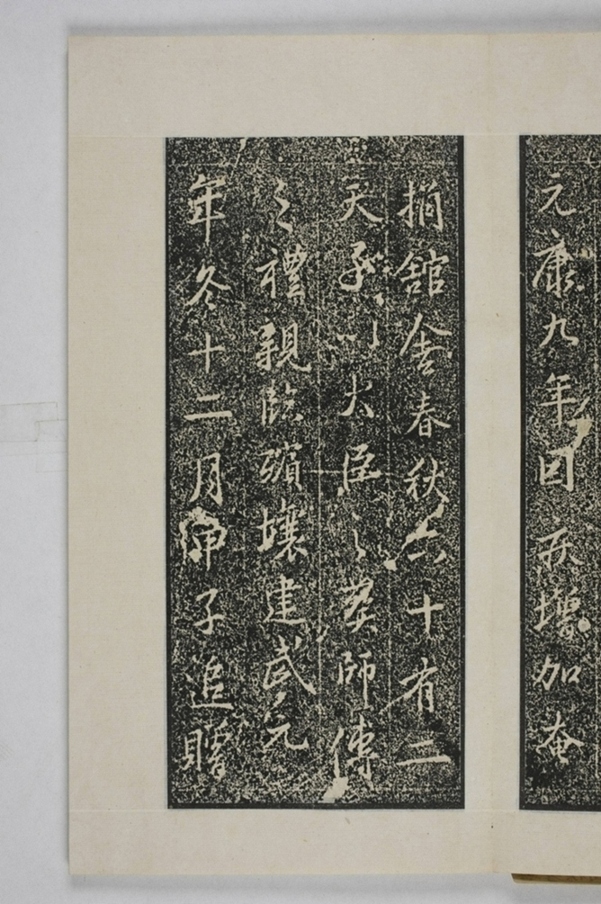 元康九年因疾增加奄
捐舘舍春秋六十有二
天子以大臣之葬師傅
之禮親臨殯壤建武元
年冬十二月甲子追贈